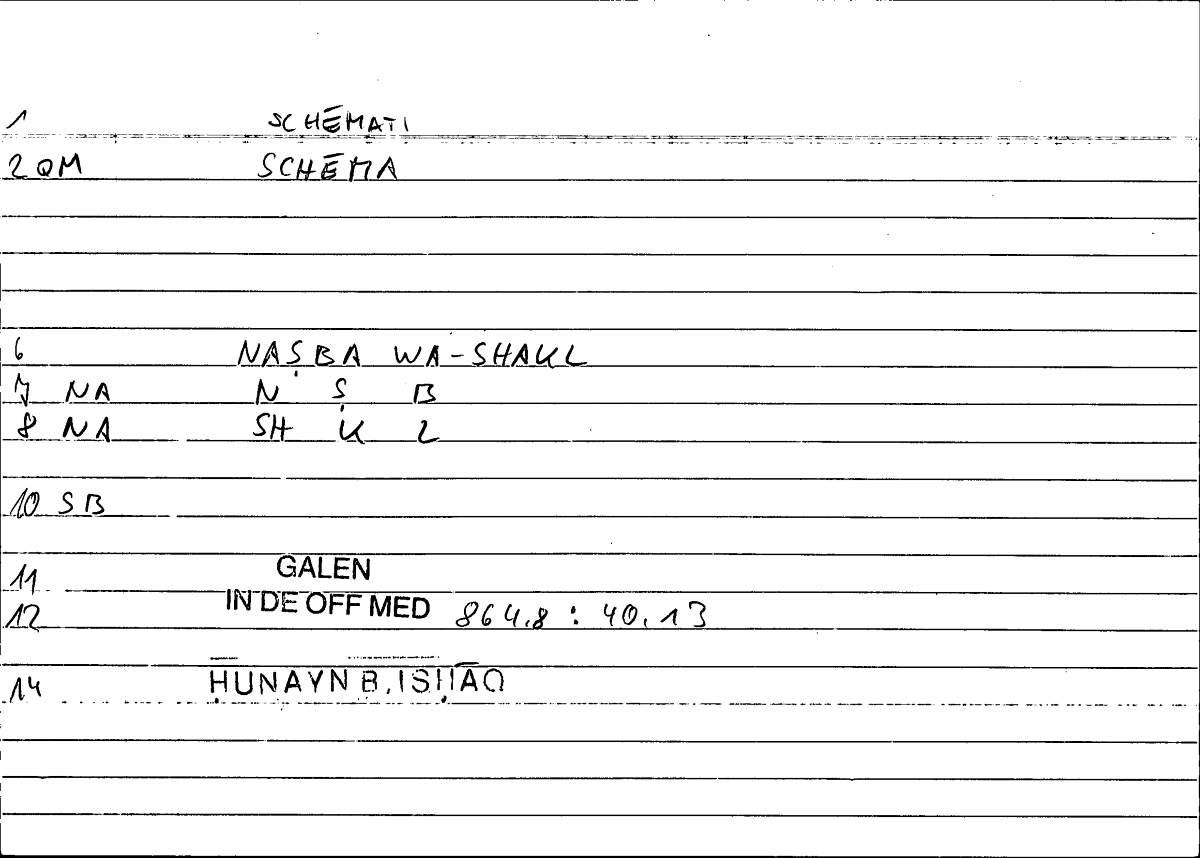 1 SCHĒMATI
2 QM SCHĒMA
6 NAṢBA WA-SHAKL
7 NA N Ṣ B
8 NA SH K L
10 SB
11 GALEN
12 IN DE OFF MED 864.8 : 40.13
14 ḤUNAYN B. ISḤĀQ